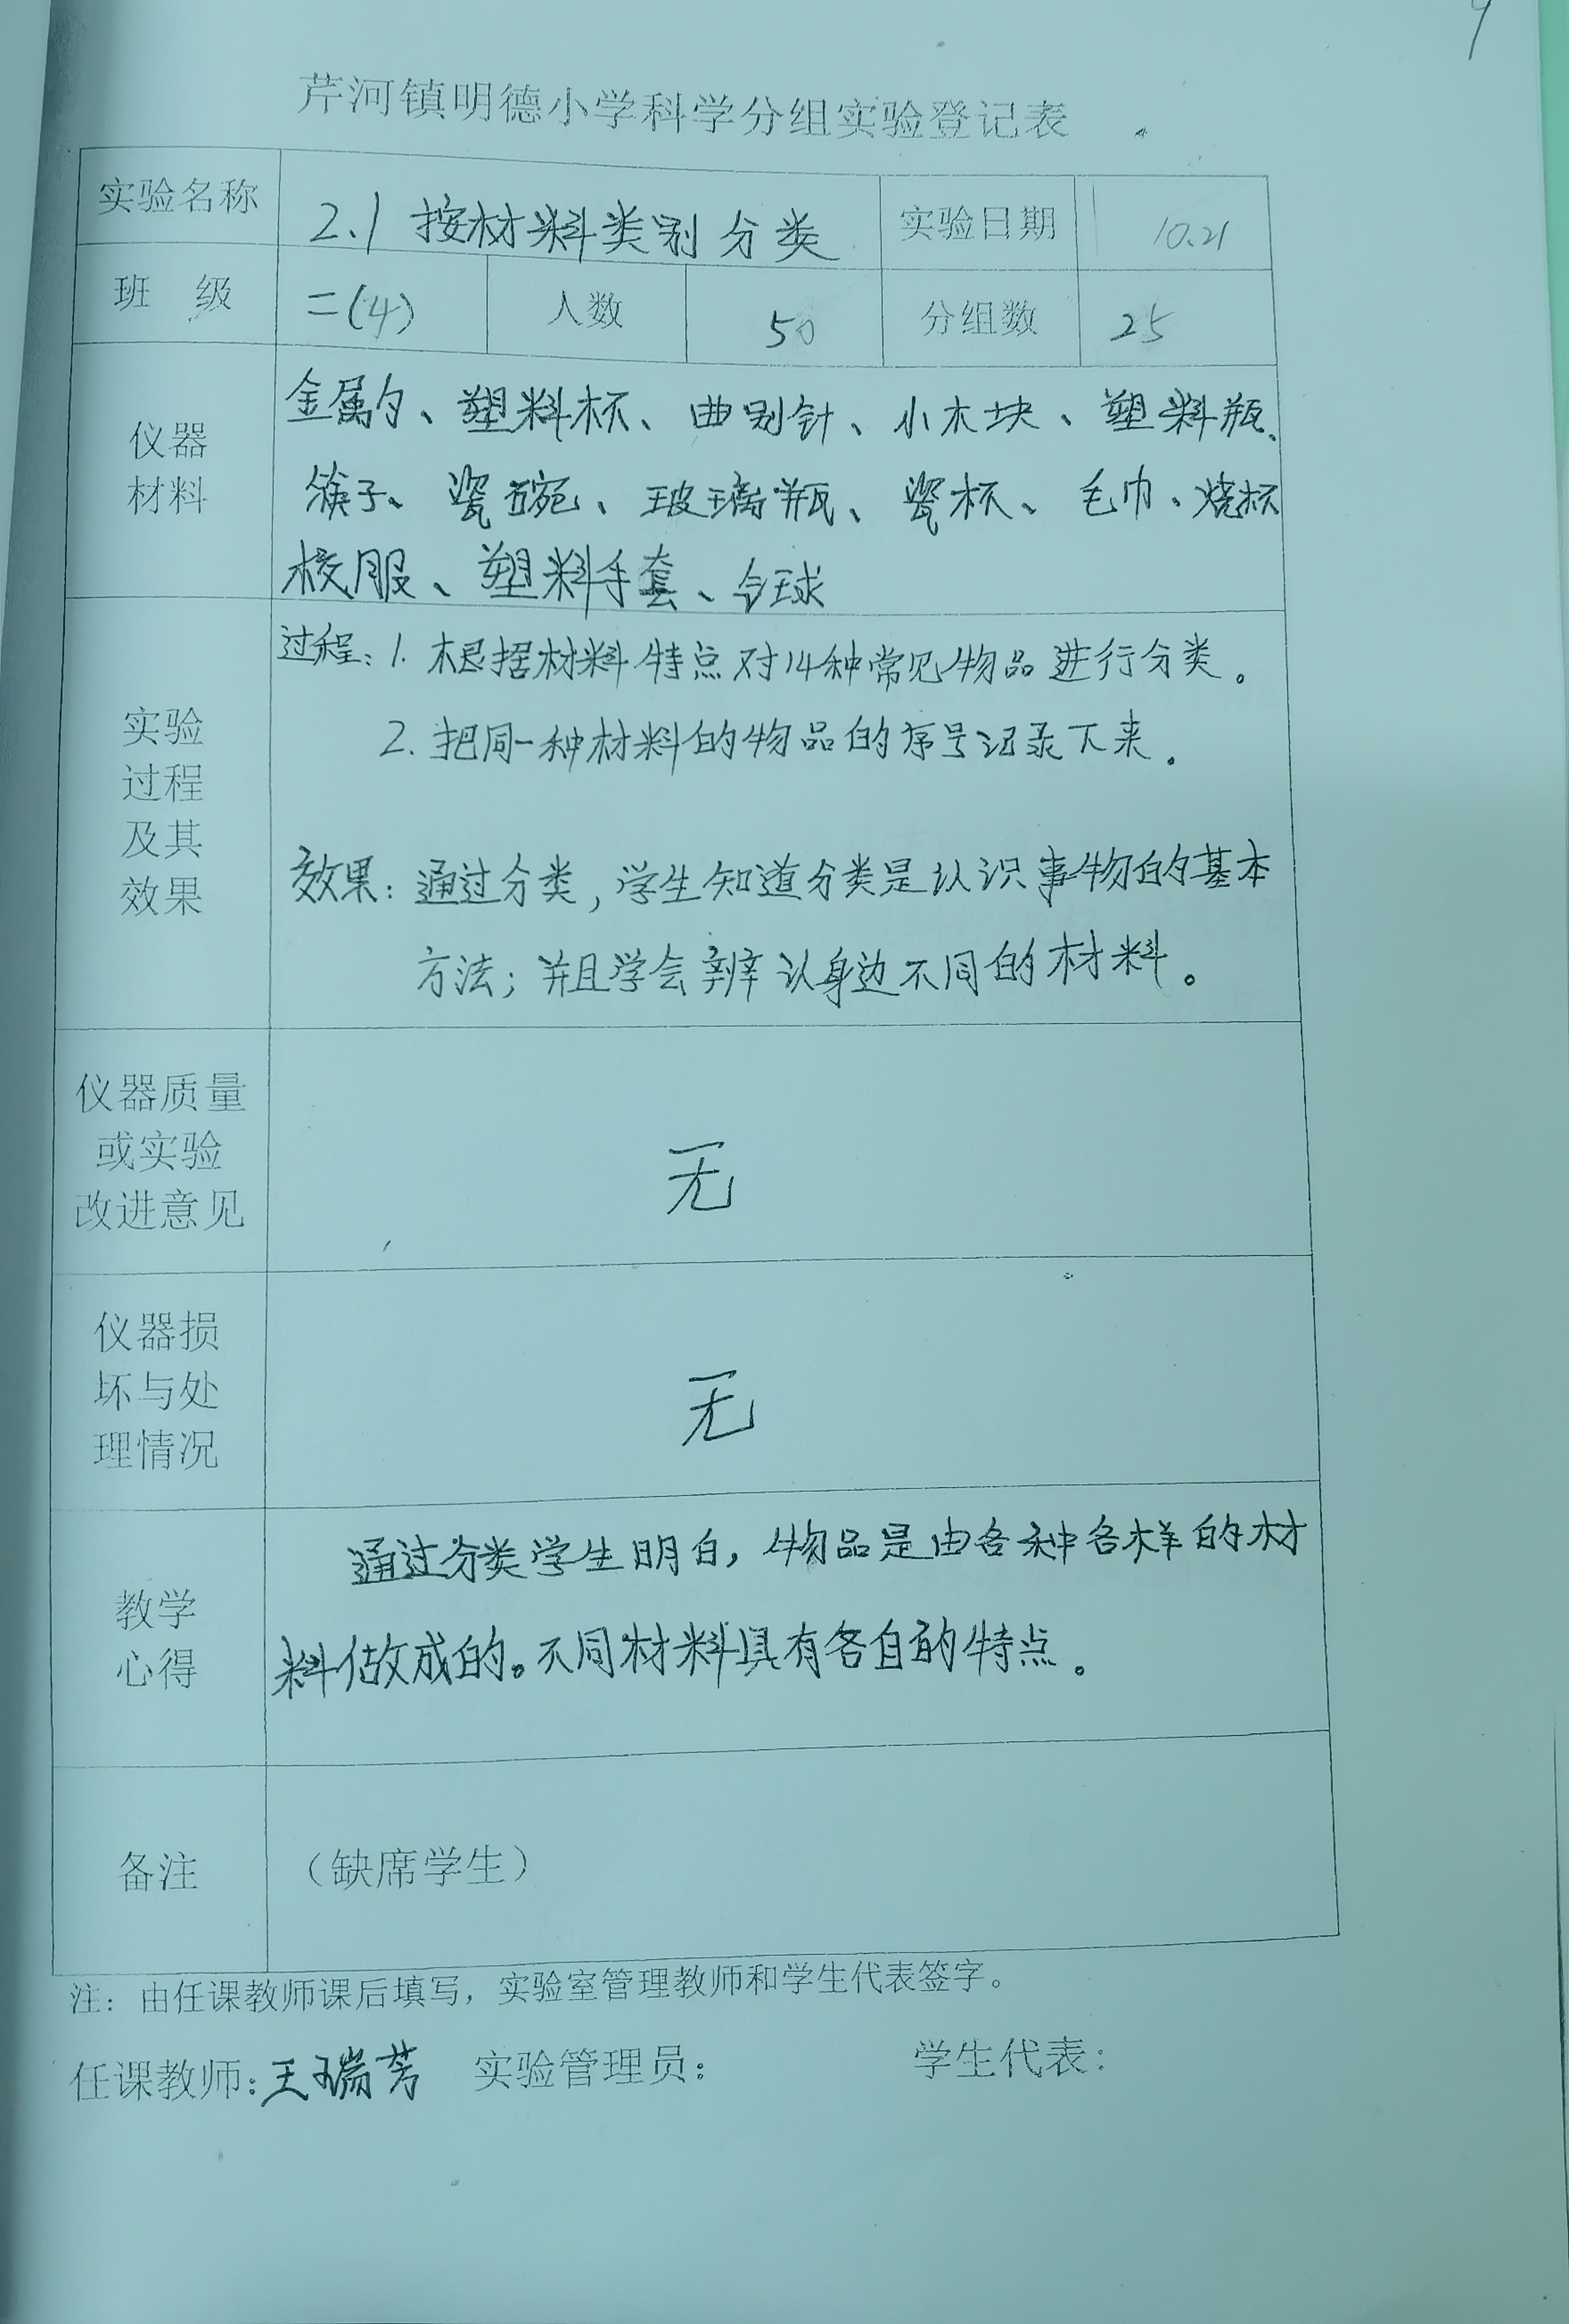 9
芹河镇明德小学科学分组实验登记表
实验名称 2.1 按材料类别分类 实验日期 10.21
班 级 二(4) 人数 50 分组数 25
仪器
材料
金属勺、塑料杯、曲别针、小木块、塑料瓶、
筷子、瓷碗、玻璃瓶、瓷杯、毛巾、烧杯
校服、塑料手套、球
实验
过程
及其
效果
过程：1. 根据材料特点对14种常见物品进行分类。
2. 把同一种材料的物品的序号记录下来。
效果：通过分类，学生知道分类是认识事物的基本
方法；并且学会辨认身边不同的材料。
仪器质量
或实验
改进意见
无
仪器损
坏与处
理情况
无
教学
心得
通过分类学生明白，物品是由各种各样的材
料做成的。不同材料具有各自的特点。
备注 （缺席学生）
注：由任课教师课后填写，实验室管理教师和学生代表签字。
任课教师：王瑞芳 实验管理员： 学生代表：